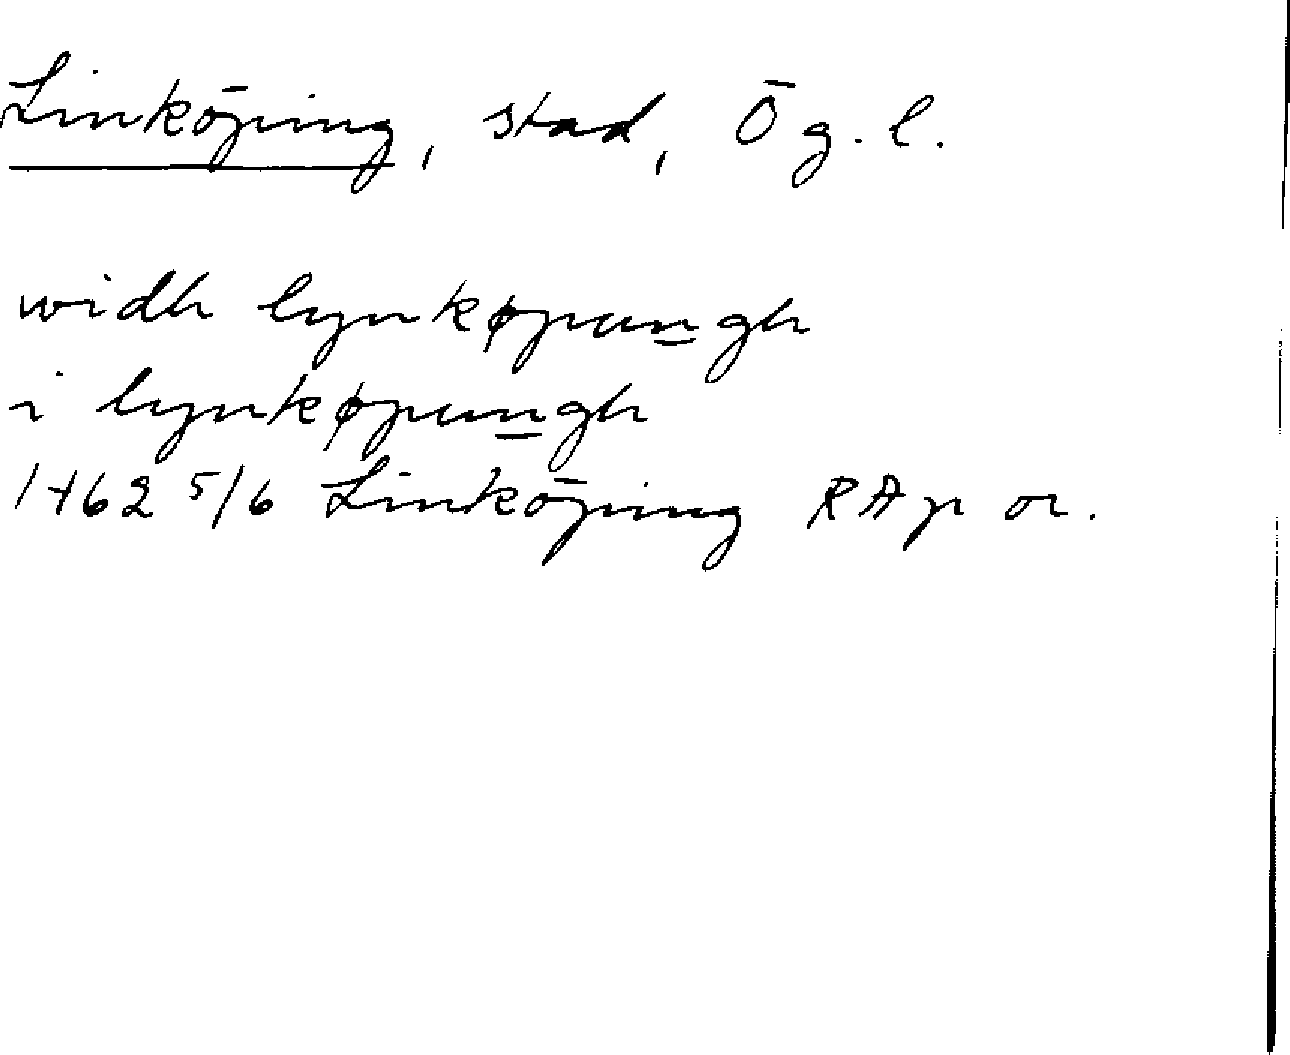 Linköping, stad, Ög. l.
widh lynkøpungh
i lynkøpungh
1462 5/6 Linköping RAp or.